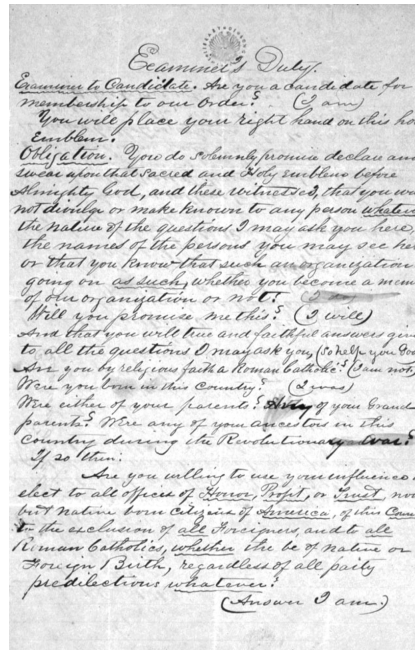 Examiner's Duty.
Examiner to Candidate. Are you a candidate for
membership to our Order? . . (I am)
You will place your right hand on this ho
Emblem.
Obligation. You do solemnly promise declare and
swear upon that sacred and Holy Emblem before
Almighty God, and these witnesses, that you wi
not divulge or make known to any person whateve
the nature of the questions I may ask you here,
the names of the persons you may see her
or that you know that such an organization
going on as such, whether you become a mem
of our organization or not?
Will you promise me this? (I will)
And that you will true and faithful answers give
to all the questions I may ask you, (So help you God
Are you by religious faith a Roman Catholic? (I am not)
Were you born in this country? (I was)
Were either of your parents? Any of your Grand
parents? Were any of your ancestors in this
country during the Revolutionary War?
If so then:
Are you willing to use your influence
elect to all offices of Honor, Profit, or Trust, no
but native born citizens of America, of this Coun
to the exclusion of all Foreigners, and to all
Roman Catholics, whether the be of native or
Foreign Birth, regardless of all party
predilections whatever?
(Answer I am.)